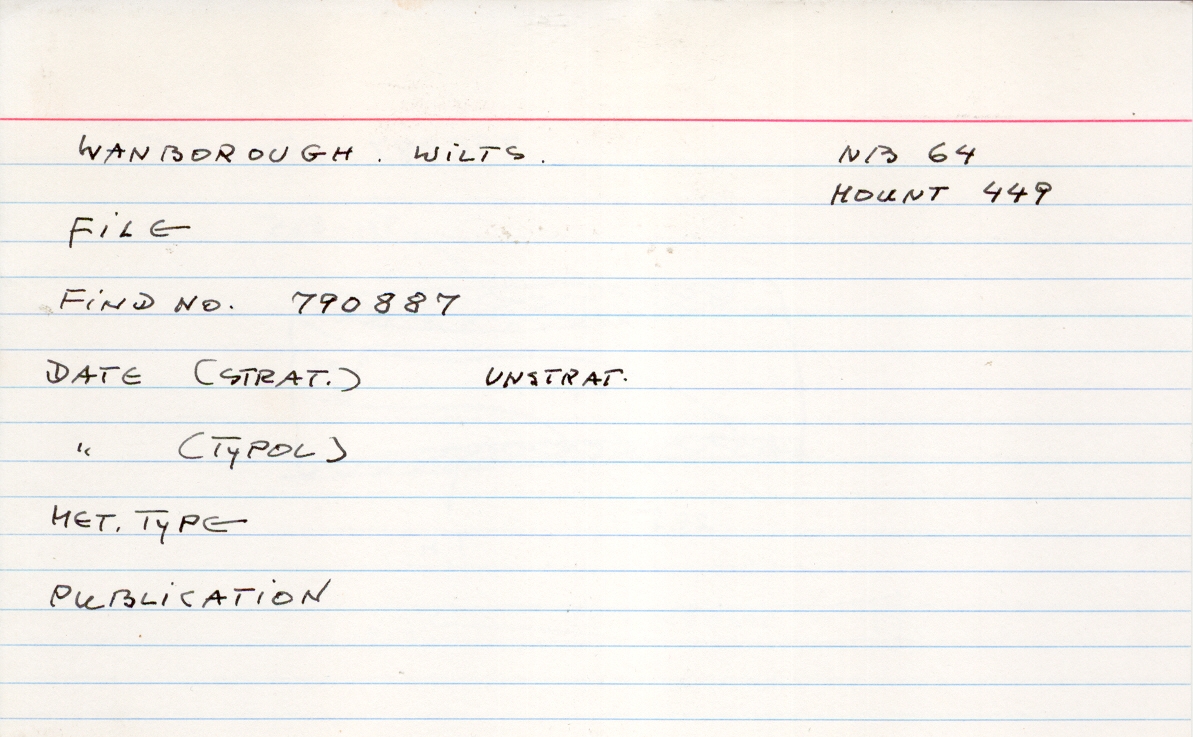 WANBOROUGH. WILTS. NB 64
MOUNT 449
FILE
FIND NO. 790887
DATE (STRAT.) UNSTRAT.
" (TYPOL)
MET. TYPE
PUBLICATION